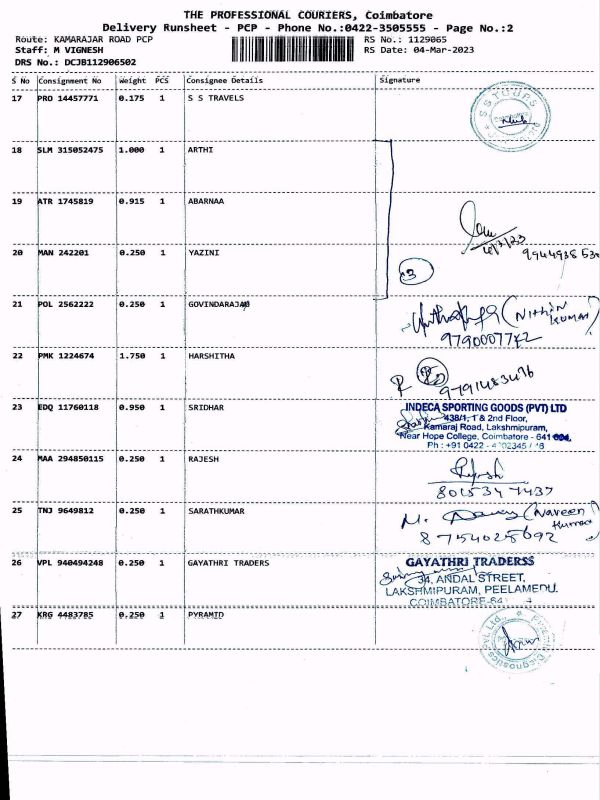 THE PROFESSIONAL COURIERS, Coimbatore
Delivery Runsheet - PCP - Phone No.:0422-3505555 - Page No.:2
Route: KAMARAJAR ROAD PCP RS No.: 1129065
Staff: M VIGNESH RS Date: 04-Mar-2023
DRS No.: DCJB112906502
S No Consignment No Weight PCS Consignee Details Signature
17 PRO 14457771 0.175 1 S S TRAVELS
S S TOURS
18 SLM 315052475 1.000 1 ARTHI
19 ATR 1745819 0.915 1 ABARNAA
4/3/23
20 MAN 242201 0.250 1 YAZINI
3
21 POL 2562222 0.250 1 GOVINDARAJAN
(Nithin Kumar)
9790007742
22 PMK 1224674 1.750 1 HARSHITHA
9791483476
23 EDQ 11760118 0.950 1 SRIDHAR
INDECA SPORTING GOODS (PVT) LTD
438/1, 1 & 2nd Floor,
Kamaraj Road, Lakshmipuram,
Near Hope College, Coimbatore - 641 004.
Ph : +91 0422 -
24 MAA 294850115 0.250 1 RAJESH
8015347437
25 TNJ 9649812 0.250 1 SARATHKUMAR
(Naveen Kumar)
8754025692
26 VPL 940494248 0.250 1 GAYATHRI TRADERS
GAYATHRI TRADERSS
34, ANDAL STREET,
LAKSHMIPURAM, PEELAMEDU.
COIMBATORE-641
27 KRG 4483785 0.250 1 PYRAMID
Diagnostics Pvt. Ltd.